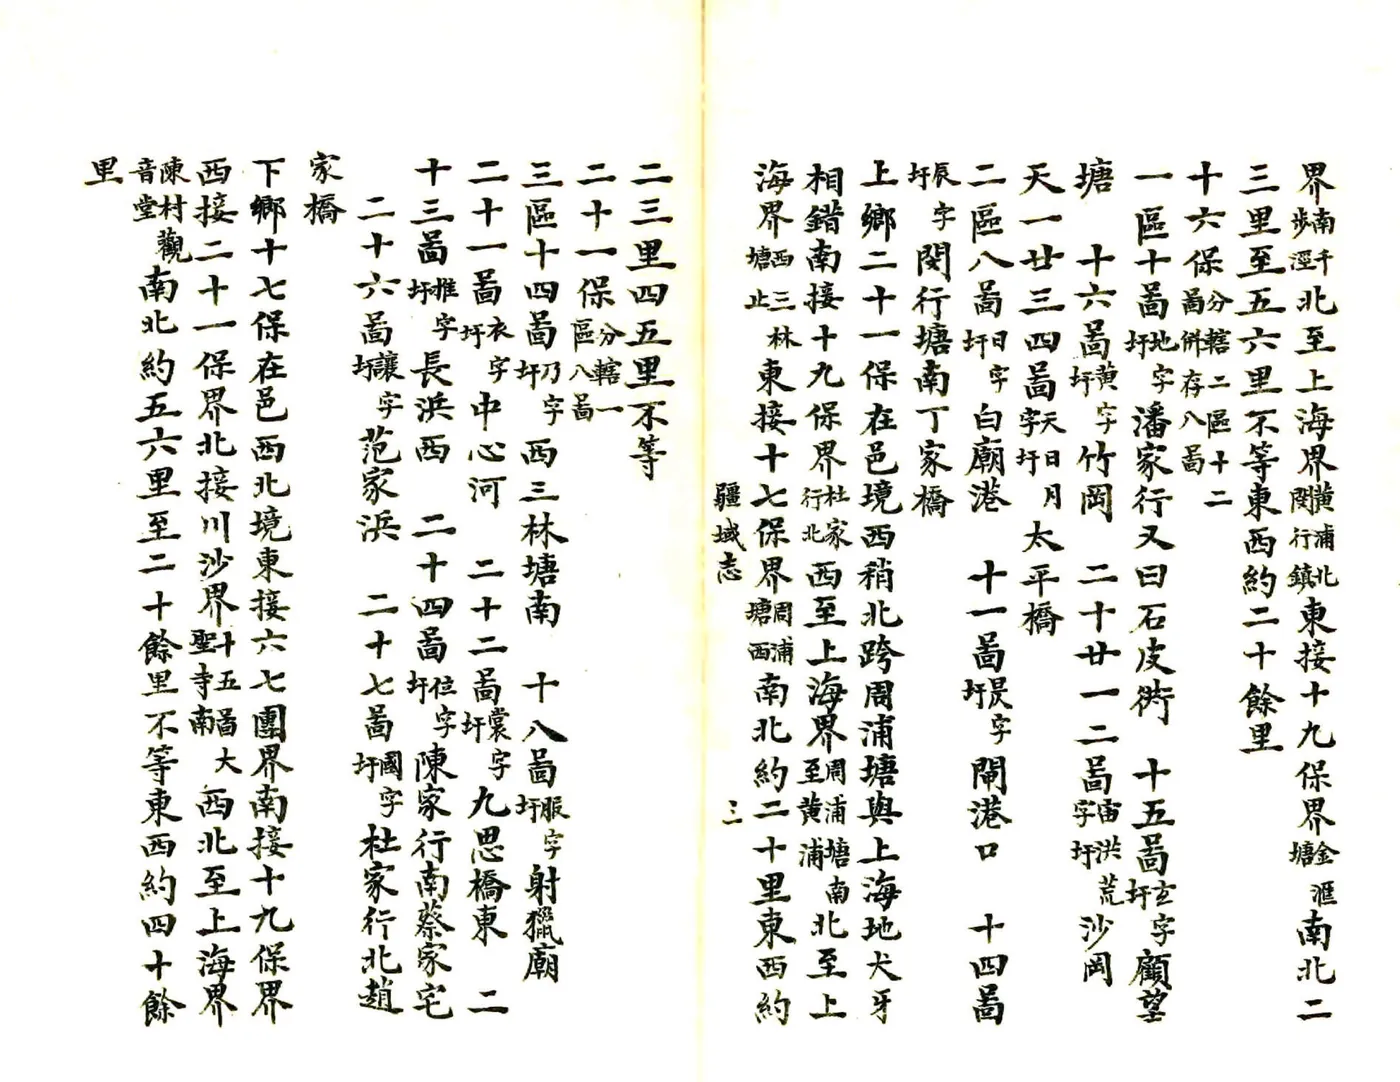 界南千步涇北至上海界黃浦北閔行鎮東接十九保界金滙塘南北二
三里至五六里不等東西約二十餘里
十六保分轄二區十二啚併存八啚
一區十啚地字圩潘家行又曰石皮衖 十五啚玄字圩顧望
塘 十六啚黃字圩竹岡 二十廿一二啚宙洪荒字圩沙岡
天一廿三四啚天日月字圩太平橋
二區八啚日字圩白廟港 十一啚昃字圩閘港口 十四啚
辰字圩閔行塘南丁家橋
上鄉二十一保在邑境西稍北跨周浦塘與上海地犬牙
相錯南接十九保界杜家行北西至上海界周浦塘南至黃浦北至上
海界西三林塘止東接十七保界周浦塘西南北約二十里東西約
疆域志 三
二三里四五里不等
二十一保分轄一區八啚
三區十四啚乃字圩西三林塘南 十八啚服字圩射獵廟
二十一啚衣字圩中心河 二十二啚裳字圩九思橋東 二
十三啚推字圩長浜西 二十四啚位字圩陳家行南蔡家宅
二十六啚讓字圩范家浜 二十七啚國字圩杜家行北趙
家橋
下鄉十七保在邑西北境東接六七團界南接十九保界
西接二十一保界北接川沙界十五啚大聖寺南西北至上海界
陳村觀音堂南北約五六里至二十餘里不等東西約四十餘
里